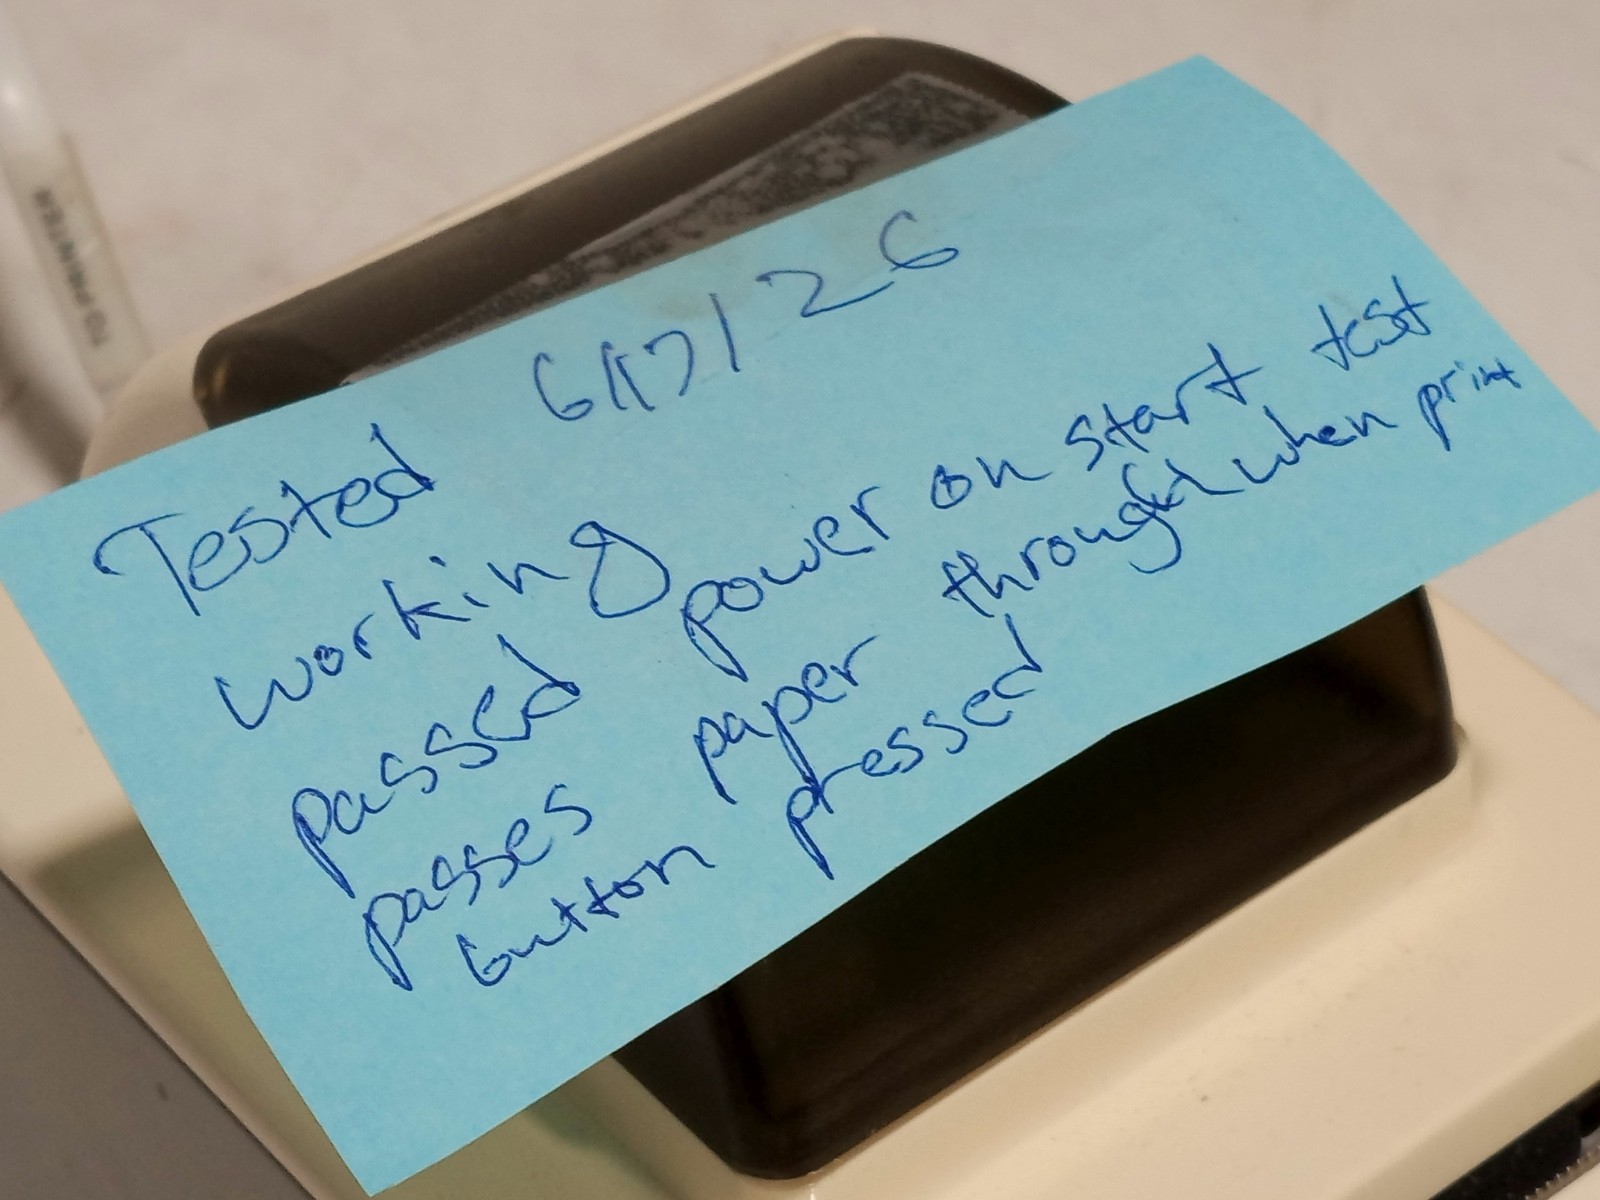 Tested 6/17/26
working
passed power on start test
passes paper through when print
button pressed
TO PRINTER